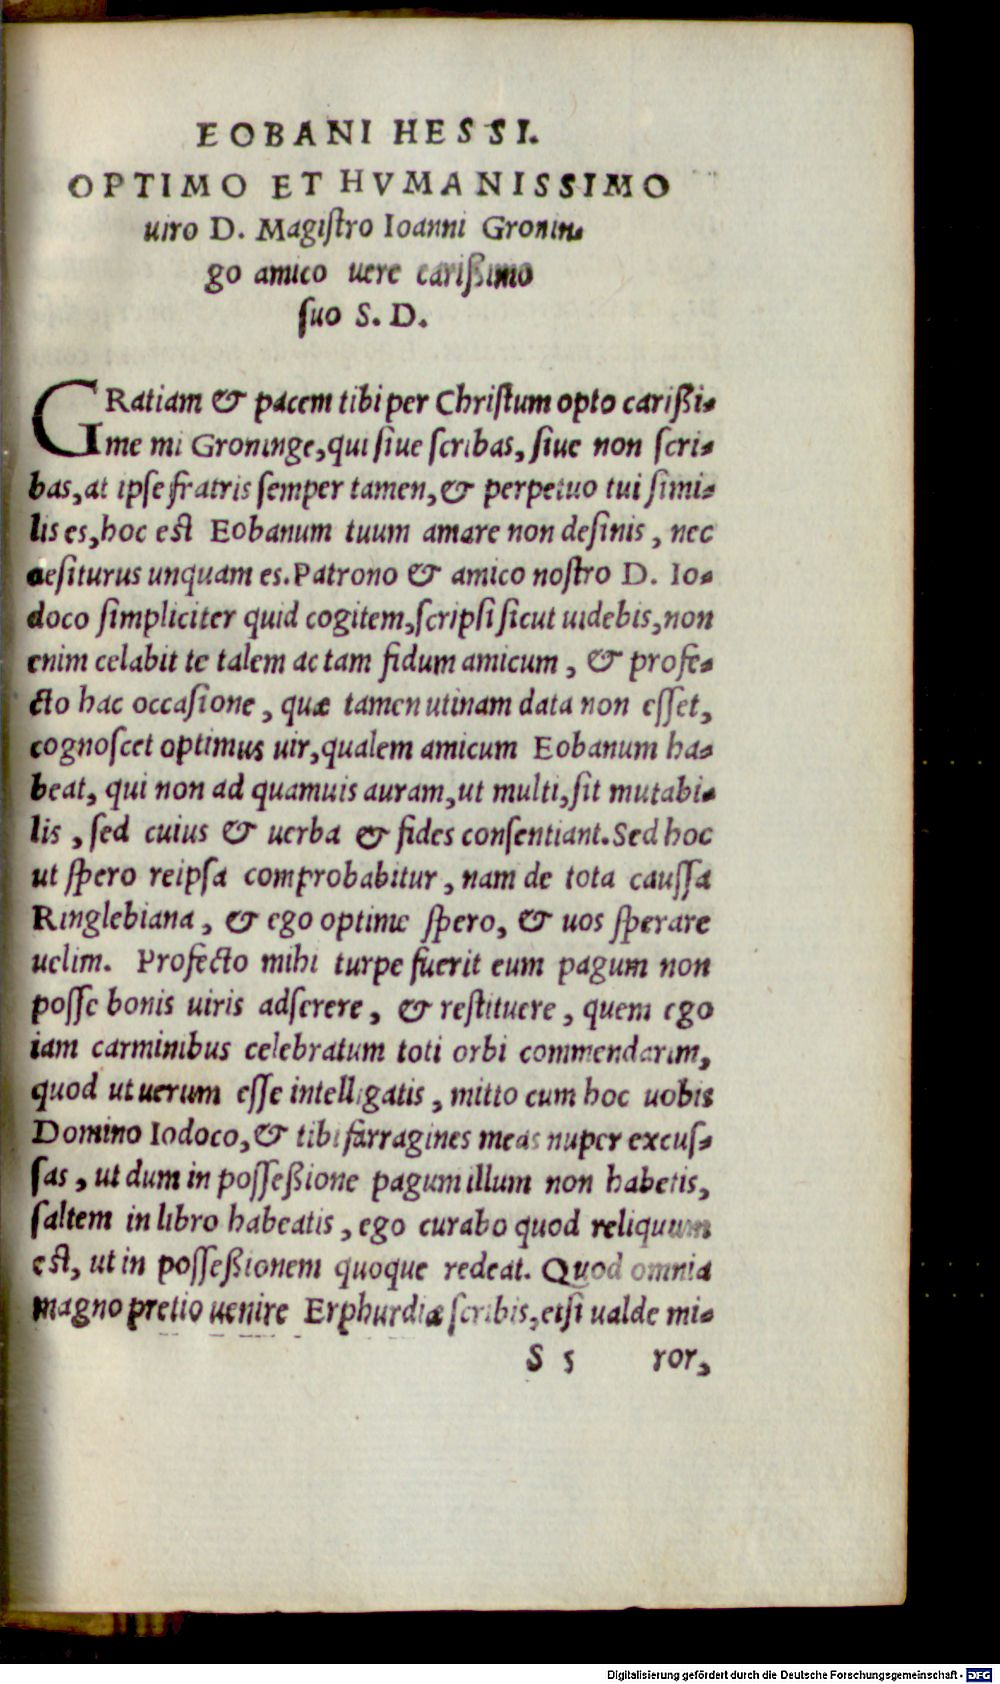 EOBANI HESSI.
OPTIMO ET HVMANISSIMO
uiro D. Magiſtro Ioanni Gronin-
go amico uere carißimo
ſuo S. D.
GRatiam & pacem tibi per Chriſtum opto carißi-
me mi Groninge, qui ſiue ſcribas, ſiue non ſcri-
bas, at ipſe fratris ſemper tamen, & perpetuo tui ſimi-
lis es, hoc eſt Eobanum tuum amare non deſinis, nec
deſiturus unquam es. Patrono & amico noſtro D. Io-
doco ſimpliciter quid cogitem, ſcripſi ſicut uidebis, non
enim celabit te talem ac tam fidum amicum, & profe-
cto hac occaſione, quæ tamen utinam data non eſſet,
cognoſcet optimus uir, qualem amicum Eobanum ha-
beat, qui non ad quamuis auram, ut multi, ſit mutabi-
lis, ſed cuius & uerba & fides conſentiant. Sed hoc
ut ſpero reipſa comprobabitur, nam de tota cauſſa
Ringlebiana, & ego optime ſpero, & uos ſperare
uelim. Profecto mihi turpe fuerit eum pagum non
poſſe bonis uiris adſerere, & reſtituere, quem ego
iam carminibus celebratum toti orbi commendarim,
quod ut uerum eſſe intelligatis, mitto cum hoc uobis
Domino Iodoco, & tibi farragines meas nuper excuſ-
ſas, ut dum in poſſeßione pagum illum non habetis,
ſaltem in libro habeatis, ego curabo quod reliquum
eſt, ut in poſſeßionem quoque redeat. Quod omnia
magno pretio uenire Erphurdiæ ſcribis, etſi ualde mi-
S 5 ror,
Digitalisierung gefördert durch die Deutsche Forschungsgemeinschaft - DFG